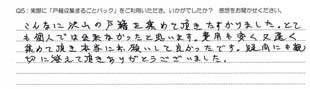 Q5：実際に「戸籍収集まるごとパック」をご利用いただき、いかがでしたか？ 感想をお聞かせください。
こんなに沢山の戸籍を集めて頂きたすかりました。とて
も個人では出来なかったと思います。費用も安く又速く
集めて頂き本当にお願いして良かったです。疑問にも親
切に答えて頂きありがとうございました。